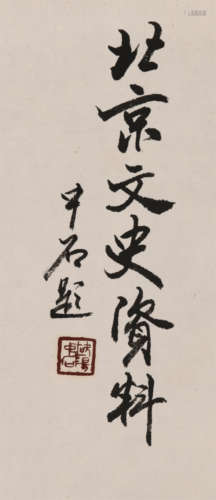 北京文史資料
中石題